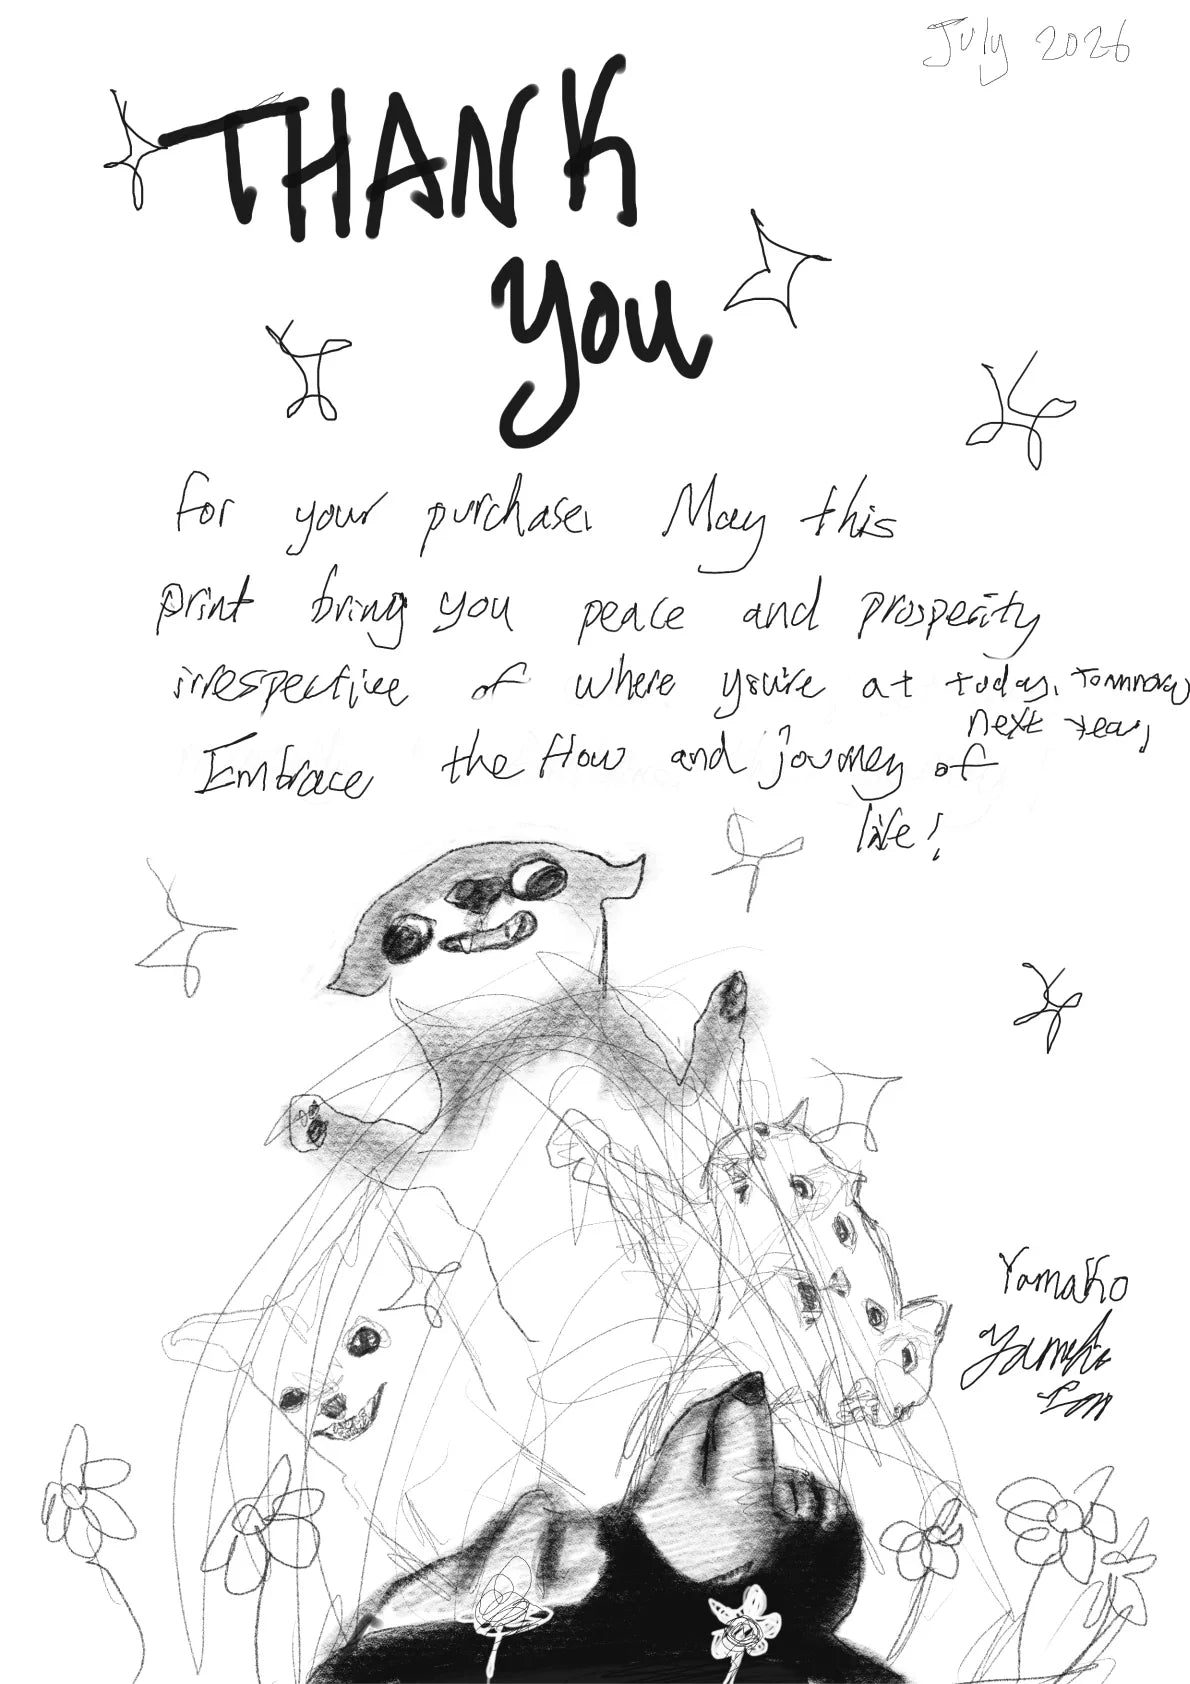 July 2026
THANK
you
for your purchase. May this
print bring you peace and prosperity
irrespective of where you're at today, tomorrow
next year,
Embrace the flow and journey of
life!
Yamako